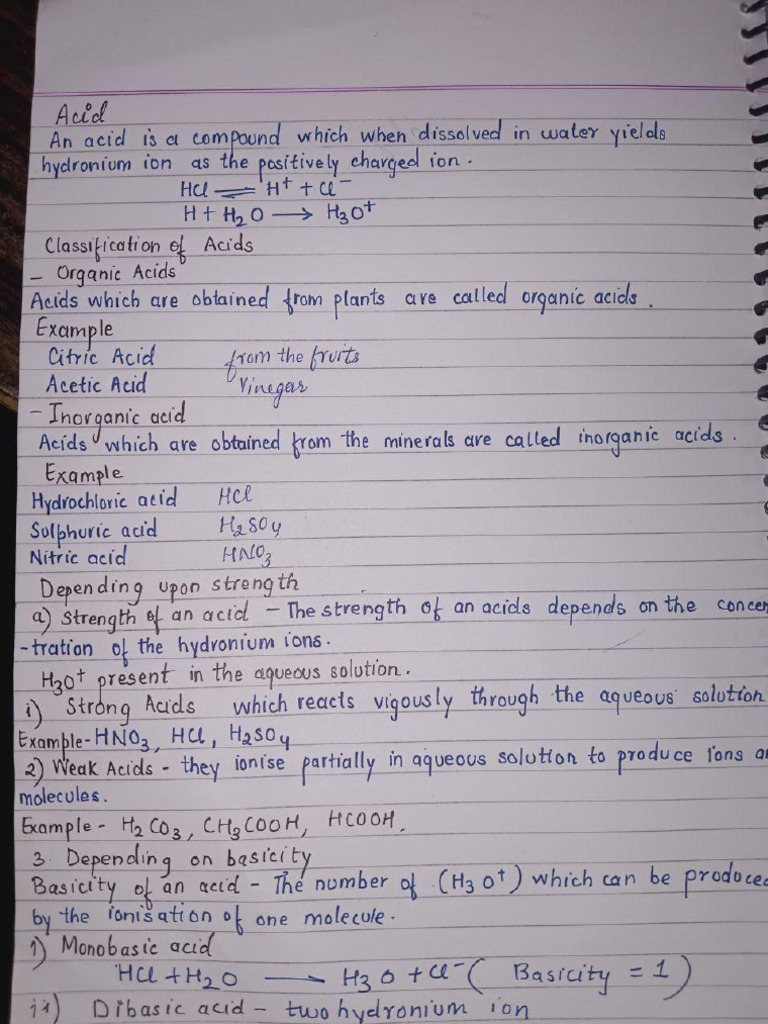 Acid
An acid is a compound which when dissolved in water yields
hydronium ion as the positively charged ion.
HCl ⇌ H⁺ + Cl⁻
H + H₂O → H₃O⁺
Classification of Acids
– Organic Acids
Acids which are obtained from plants are called organic acids.
Example
Citric Acid from the fruits
Acetic Acid Vinegar
– Inorganic acid
Acids which are obtained from the minerals are called inorganic acids.
Example
Hydrochloric acid HCl
Sulphuric acid H₂SO₄
Nitric acid HNO₃
Depending upon strength
a) Strength of an acid – The strength of an acids depends on the concen
-tration of the hydronium ions.
H₃O⁺ present in the aqueous solution.
i) Strong Acids which reacts vigously through the aqueous solution
Example - HNO₃, HCl, H₂SO₄
2) Weak Acids - they ionise partially in aqueous solution to produce ions a
molecules.
Example - H₂CO₃, CH₃COOH, HCOOH.
3. Depending on basicity
Basicity of an acid - The number of (H₃O⁺) which can be produce
by the ionisation of one molecule.
1) Monobasic acid
HCl + H₂O → H₃O + Cl⁻ ( Basicity = 1 )
ii) Dibasic acid – two hydronium ion